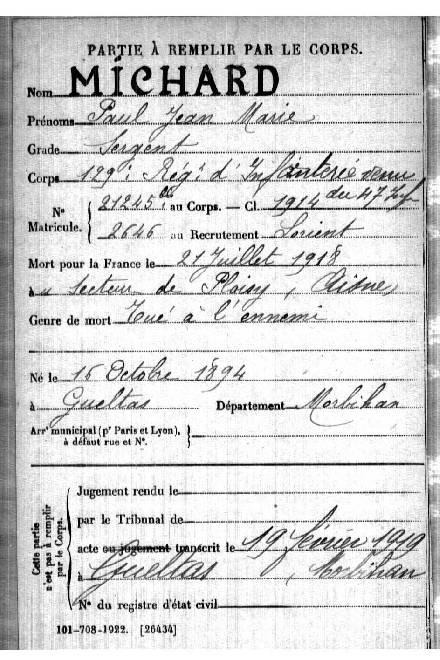 PARTIE À REMPLIR PAR LE CORPS.
Nom MICHARD
Prénoms Paul Jean Marie
Grade Sergent
Corps 129e Régt d'Infanterie venu
du 47 Inf
N° Matricule. { 21245 bis au Corps. — Cl. 1914
2646 au Recrutement Lorient
Mort pour la France le 21 Juillet 1918
à Secteur de Ploisy, Aisne
Genre de mort Tué à l'ennemi
Né le 16 Octobre 1894
à Gueltas Département Morbihan
Arrt municipal (pr Paris et Lyon),
à défaut rue et N°.
Cette partie
n'est pas à remplir
par le Corps.
Jugement rendu le
par le Tribunal de
acte ou jugement transcrit le 19 février 1919
à Gueltas, Morbihan
N° du registre d'état civil
101-708-1922. [26434]